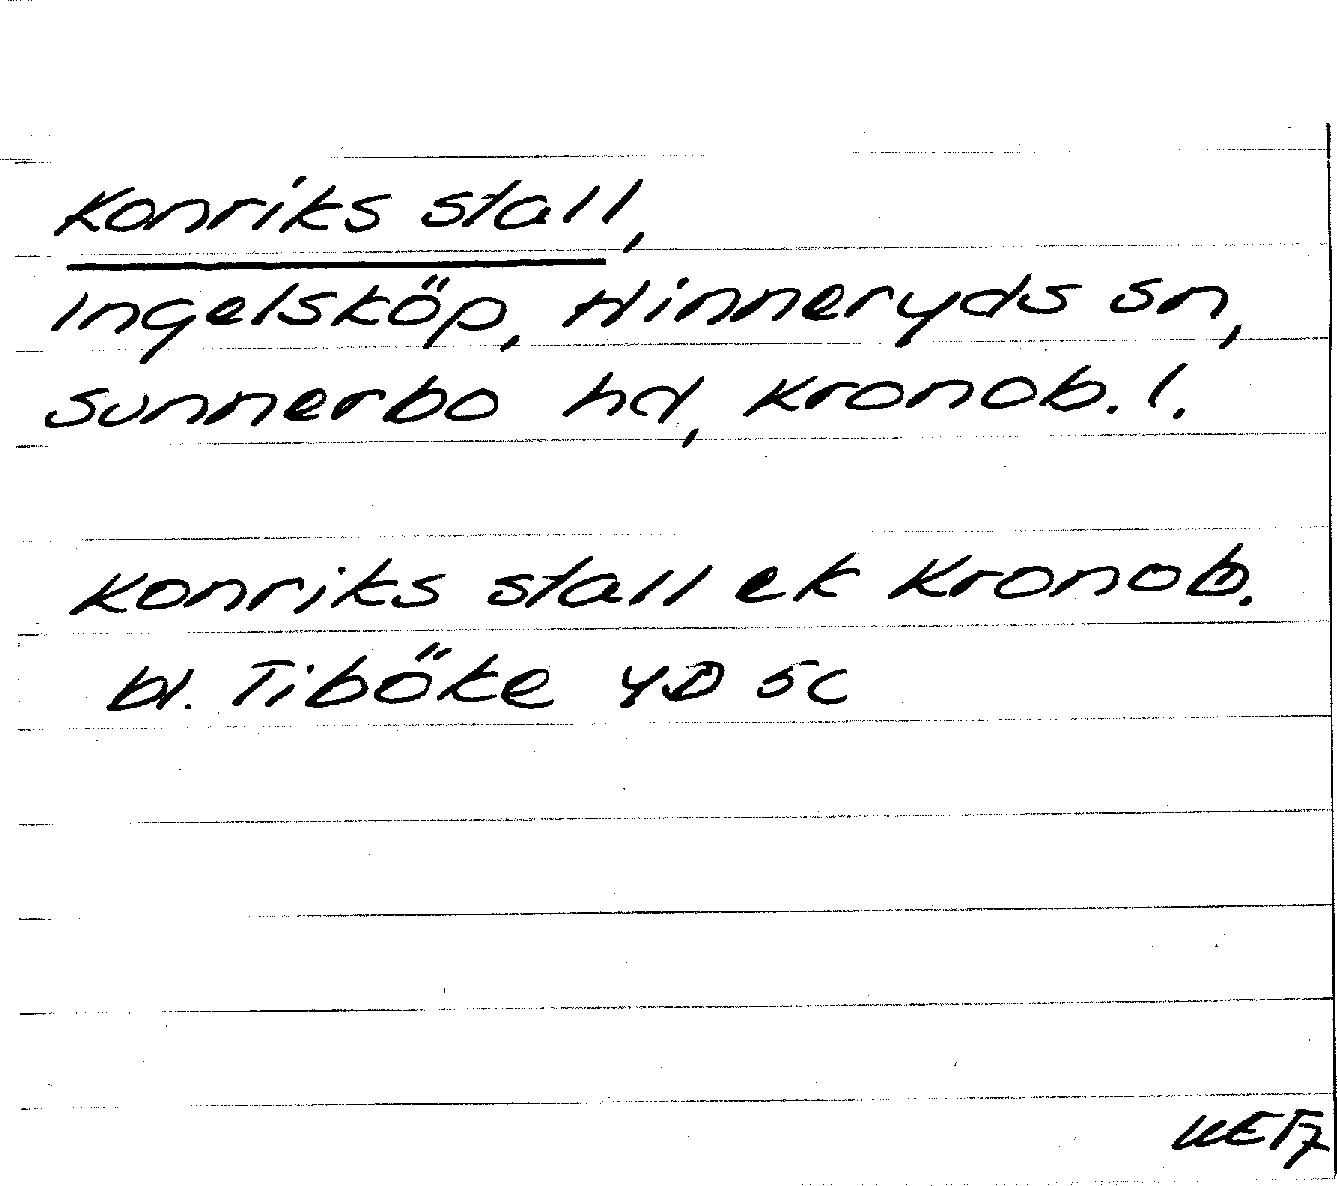 Konriks stall,
Ingelsköp, Hinneryds sn,
Sunnerbo hd, Kronob. l.
Konriks stall ek Kronob.
bl. Tiböke 4D 5c